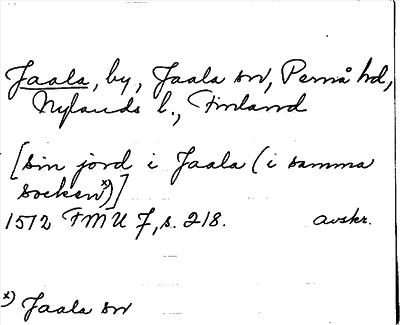 Jaala, by, Jaala sn, Pernå hd,
Nylands l., Finland
[sin jord i Jaala (i samma
socken x))]
1512 FMU 7, s. 218. avskr.
x) Jaala sn